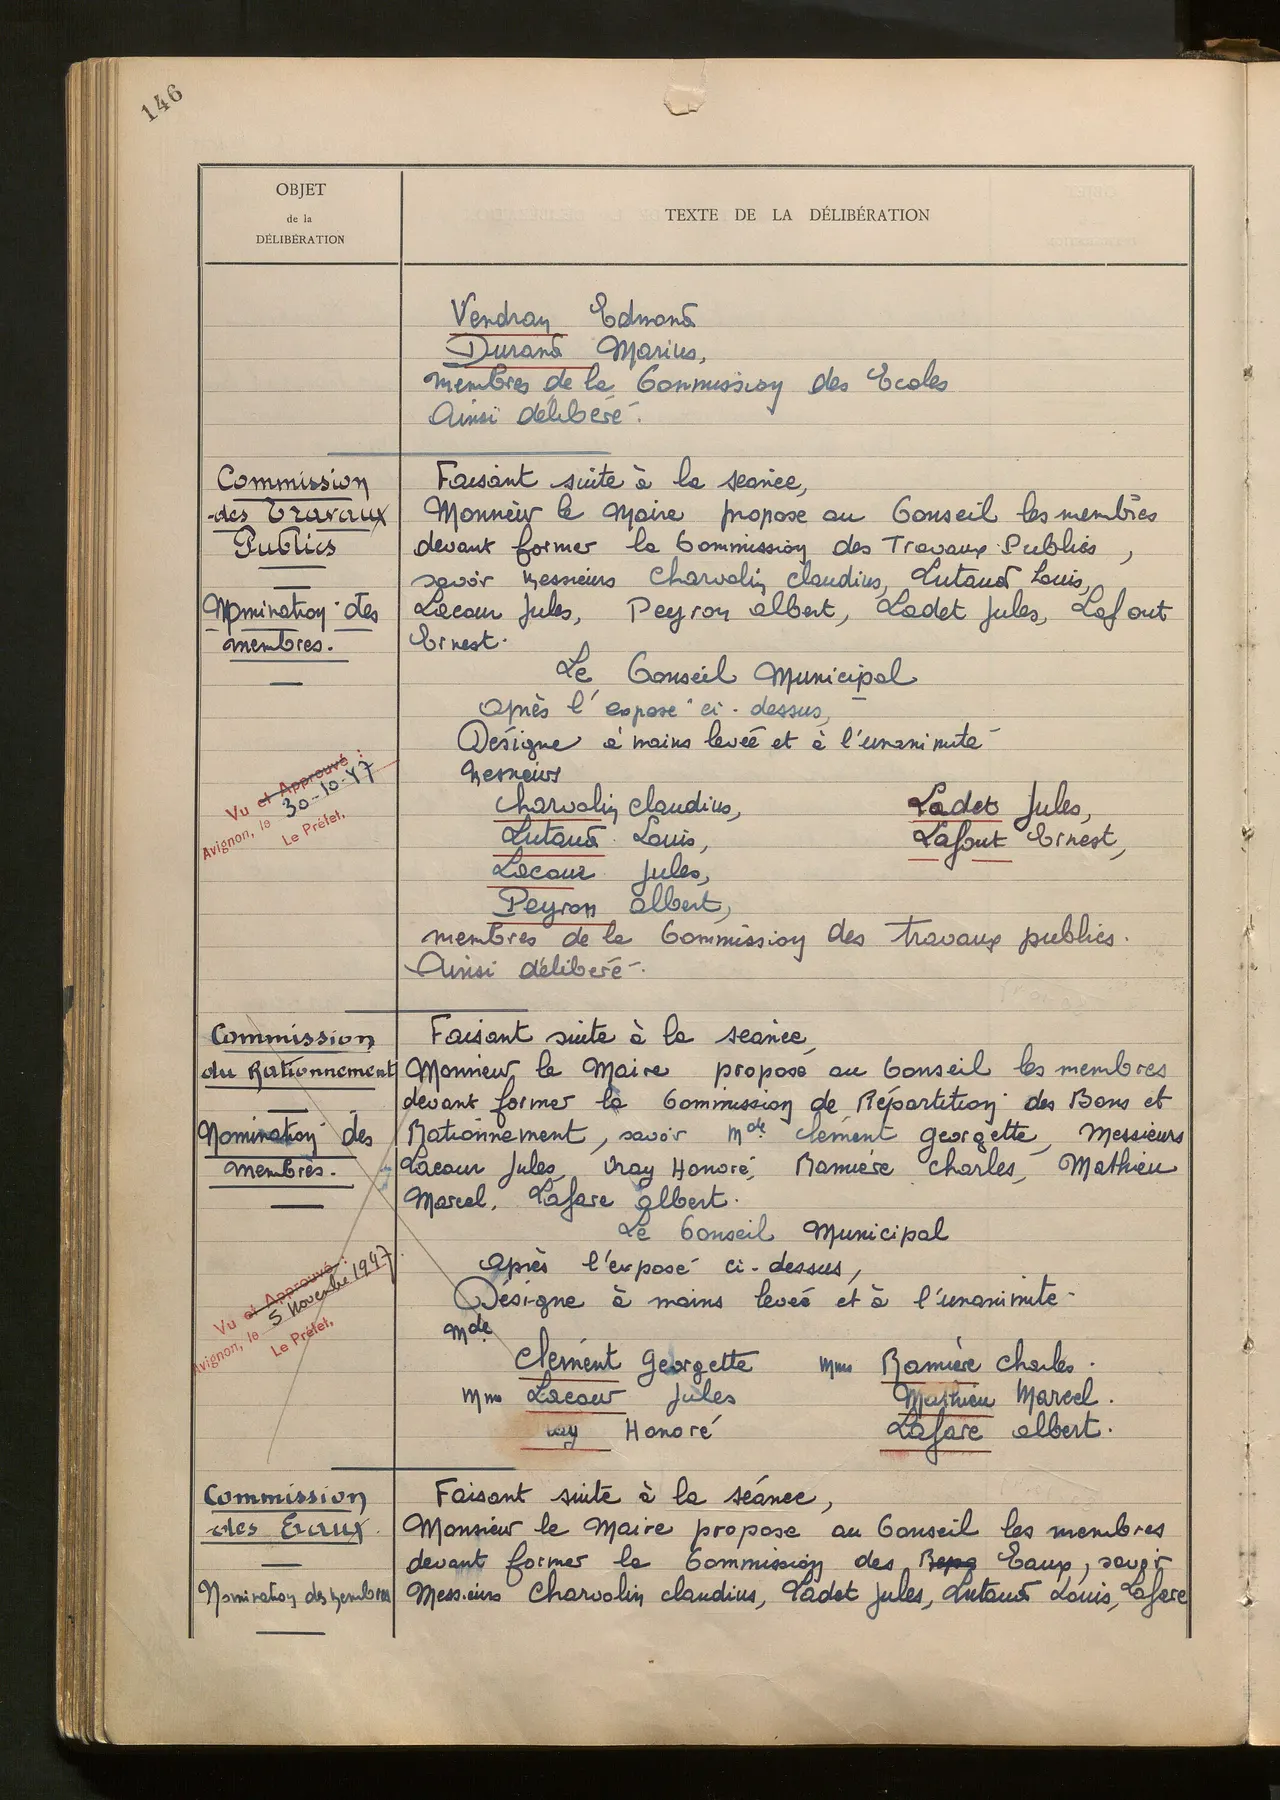 146
OBJET
de la
DÉLIBÉRATION
TEXTE DE LA DÉLIBÉRATION
Vendran Edmond
Durand Marius,
membres de la Commission des Ecoles
Ainsi délibéré.
Commission
des Travaux
Publics
Nomination des
membres.
Vu et Approuvé :
Avignon, le 30-10-47
Le Préfet,
Faisant suite à la séance,
Monsieur le Maire propose au Conseil les membres
devant former la Commission des Travaux Publics,
savoir Messieurs Charvolin Claudius, Lutaud Louis,
Lacour Jules, Peyron Albert, Ladet Jules, Lafont
Ernest.
Le Conseil Municipal
après l'exposé ci-dessus,
Désigne à mains levée et à l'unanimité
Messieurs
Charvolin Claudius,
Lutaud Louis,
Lacour Jules,
Peyron Albert,
Ladet Jules,
Lafont Ernest,
membres de la Commission des travaux publics.
Ainsi délibéré.
Commission
du Rationnement
Nomination des
membres.
Vu et Approuvé :
Avignon, le 5 Novembre 1947
Le Préfet,
Faisant suite à la séance,
Monsieur le Maire propose au Conseil les membres
devant former la Commission de Répartition des Bons et
Rationnement, savoir Mde Clément Georgette, Messieurs
Lacour Jules, Vray Honoré, Ramière Charles, Mathieu
Marcel, Lafare Albert.
Le Conseil Municipal
après l'exposé ci-dessus,
Désigne à mains levée et à l'unanimité
Mde
Clément Georgette
Mms Lacour Jules
Honoré
Mms Ramière Charles.
Mathieu Marcel.
Lafare Albert.
Commission
des Eaux
Nomination des membres
Faisant suite à la séance,
Monsieur le Maire propose au Conseil les membres
devant former la Commission des Eaux, savoir
Messieurs Charvolin Claudius, Ladet Jules, Lutaud Louis, Lafare